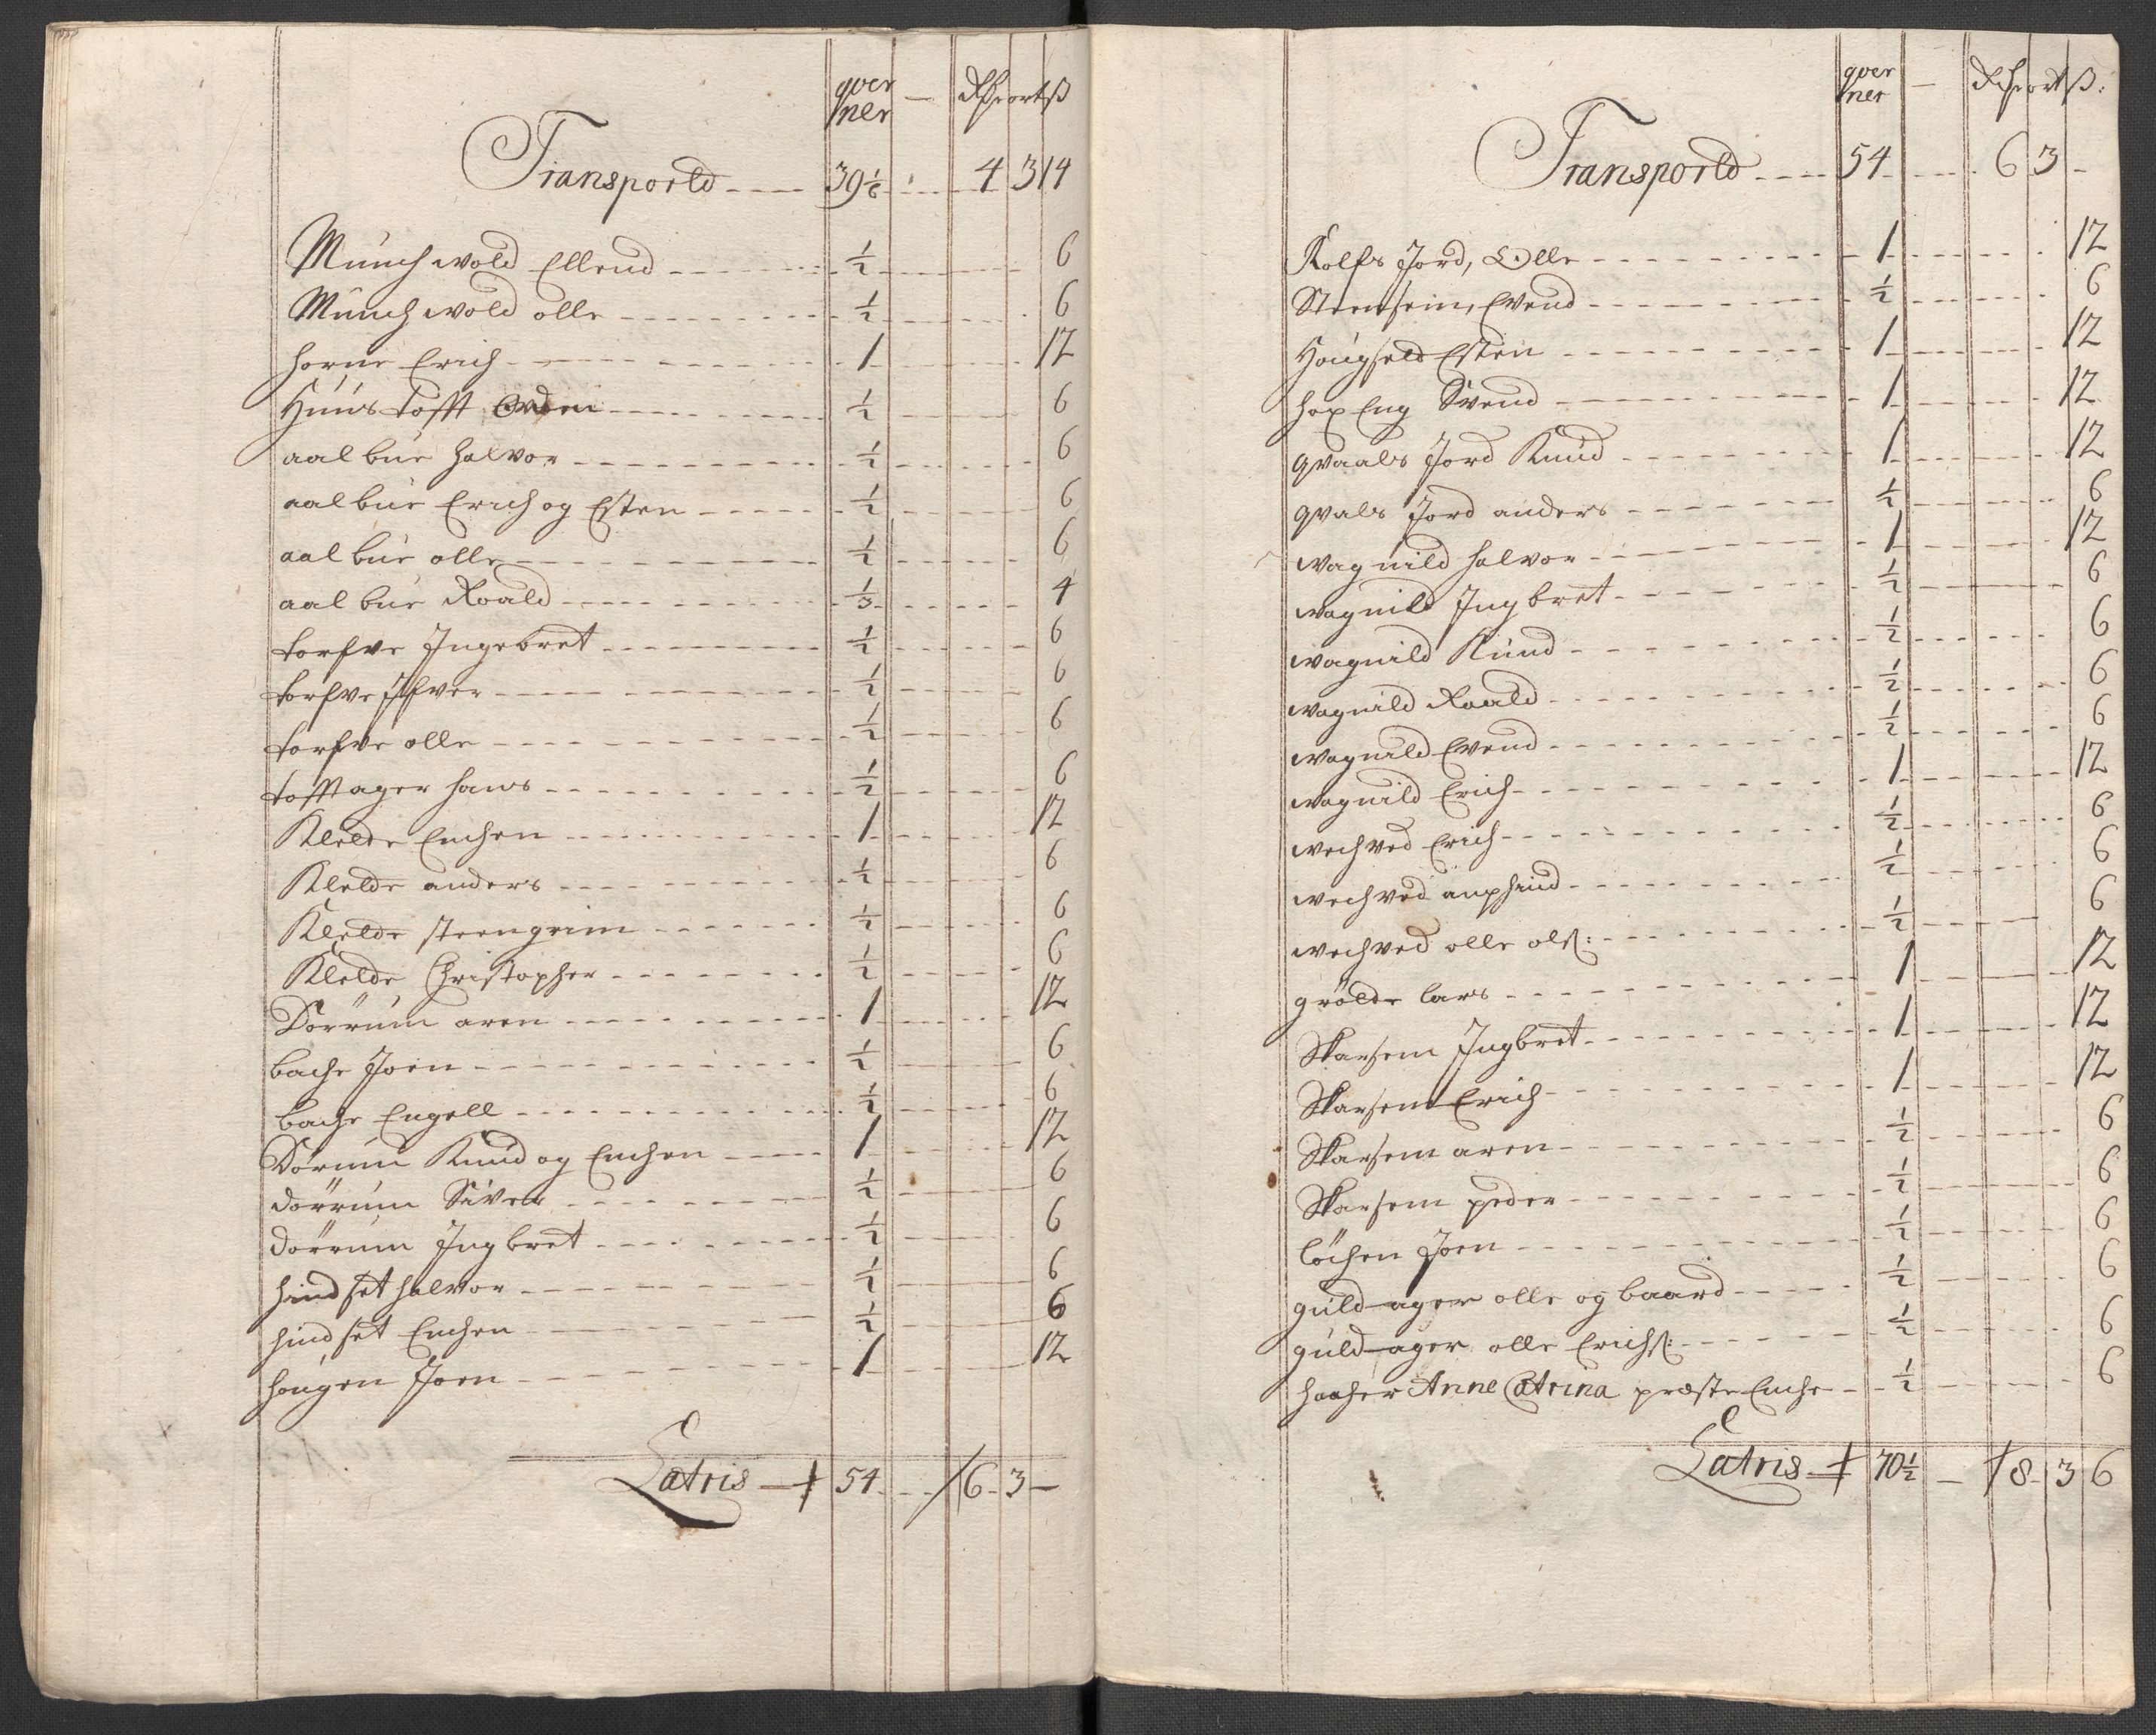 qver
ner — Rdr ort ß
Transporld — 39 1/6 — 4 3 14
Münchwold Ellend — 1/2 — 6
Münchwold olle — 1/2 — 6
horne Erich — 1 — 12
Hüüs tofft — 1/2 — 6
aalbue halvor — 1/2 — 6
aalbue Erich og Esten — 1/2 — 6
aalbue olle — 1/2 — 6
aalbue Roald — 1/3 — 4
torfve Ingebret — 1/2 — 6
torfve Ifver — 1/2 — 6
torfve olle — 1/2 — 6
tofftager hans — 1/2 — 6
Klelde Enchen — 1 — 12
Klelde anders — 1/2 — 6
Klelde steengrim — 1/2 — 6
Klelde Christopher — 1/2 — 6
Dörrüm aren — 1 — 12
bache Joen — 1/2 — 6
bache Engell — 1/2 — 6
Dörüm Knud og Enchen — 1 — 12
dörrüm Siver — 1/2 — 6
dörrüm Ingbret — 1/2 — 6
hindset halvor — 1/2 — 6
hindset Enchen — 1/2 — 6
hougen Joen — 1 — 12
Latris — 54 — 6 3 —
qver
ner — Rdr ort ß:
Transporld — 54 — 6 3 —
Rolfs Jord, Olle — 1 — 12
Steensein, Evend — 1/2 — 6
Hougseld Esten — 1 — 12
hox Eng Svend — 1 — 12
qvaals Jord Knud — 1 — 12
qvals Jord anders — 1/2 — 6
wagnild halvor — 1 — 12
wagnild Ingbret — 1/2 — 6
wagnild Knud — 1/2 — 6
wagnild Roald — 1/2 — 6
wagnild Evend — 1/2 — 6
wagnild Erich — 1 — 12
wechved Erich — 1/2 — 6
wechved — 1/2 — 6
wechved olle olß: — 1/2 — 6
grölde lars — 1 — 12
Skarsem Ingbret — 1 — 12
Skarsem Erich — 1 — 12
Skarsem aren — 1/2 — 6
Skarsem peder — 1/2 — 6
löchen Joen — 1/2 — 6
guldager olle og baard — 1/2 — 6
guldager olle Erichß: — 1/2 — 6
haaker Anne Catrina præste Enche — 1/2 — 6
Latris — 70 1/2 — 8 3 6